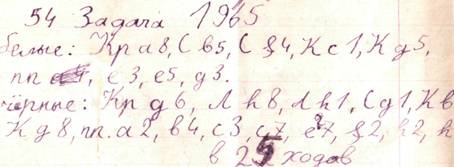 54 Задача 1965
белые: Кра8, С b5, С f4, К c1, К д5,
пп e3, e5, д3.
чёрные: Кр д6, Л h8, Л h1, С д1, К в
К д8, пп. а2, в4, с3, с7, e7, f2, h2, h
в 25 ходов